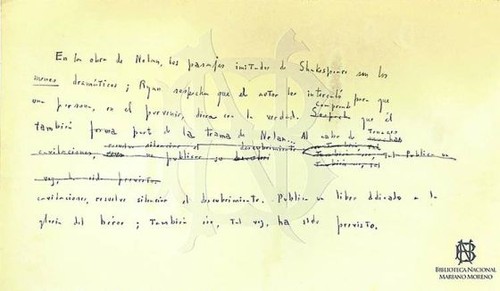 En la obra de Nolan, los pasajes imitados de Shakespeare son los
menos dramáticos; Ryan sospecha que el autor los intercaló para que
una persona, en el porvenir, diera con la verdad. Comprende que él
también forma parte de la trama de Nolan... Al cabo de tenaces
cavilaciones, resuelve silenciar el descubrimiento
voz, ha sido previsto
cavilaciones, resuelve silenciar el descubrimiento. Publica un libro dedicado a la
gloria del héroe; también eso, tal vez, ha sido previsto.
BN
BIBLIOTECA NACIONAL
MARIANO MORENO